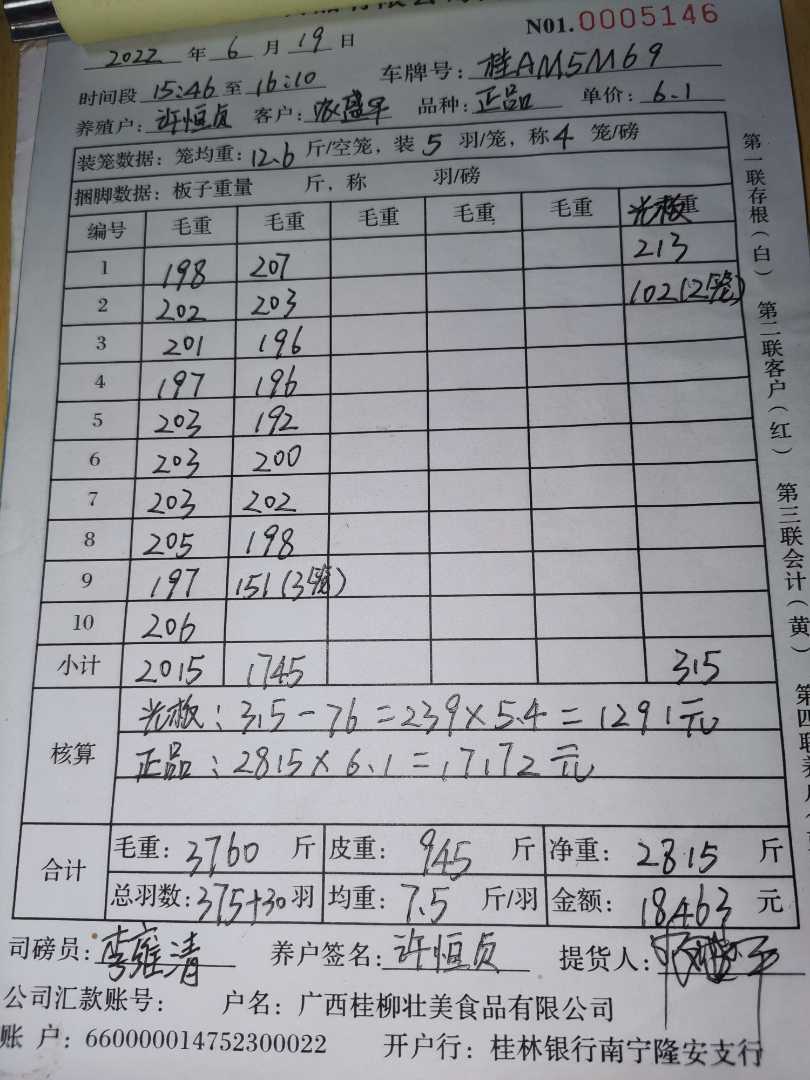 N01.0005146
2022 年 6 月 19 日
时间段 15:46 至 16:10 车牌号: 桂AM5M69
养殖户: 许恒贞 客户: 品种: 正品 单价: 6.1
装笼数据: 笼均重: 12.6 斤/空笼, 装 5 羽/笼, 称 4 笼/磅
捆脚数据: 板子重量 斤, 称 羽/磅
编号 毛重 毛重 毛重 毛重 毛重 光板重
1 198 207 213
2 202 203 102(2笼)
3 201 196
4 197 196
5 203 192
6 203 200
7 203 202
8 205 198
9 197 151(3笼)
10 206
小计 2015 1745 315
核算
光板: 315-76=239×5.4=1291元
正品: 2815×6.1=17172元
合计
毛重: 3760 斤 皮重: 945 斤 净重: 2815 斤
总羽数: 375+30 羽 均重: 7.5 斤/羽 金额: 18463 元
司磅员: 李雍清 养户签名: 许恒贞 提货人:
公司汇款账号: 户名: 广西桂柳壮美食品有限公司
账 户: 660000014752300022 开户行: 桂林银行南宁隆安支行
第一联存根(白) 第二联客户(红) 第三联会计(黄) 第四联养户